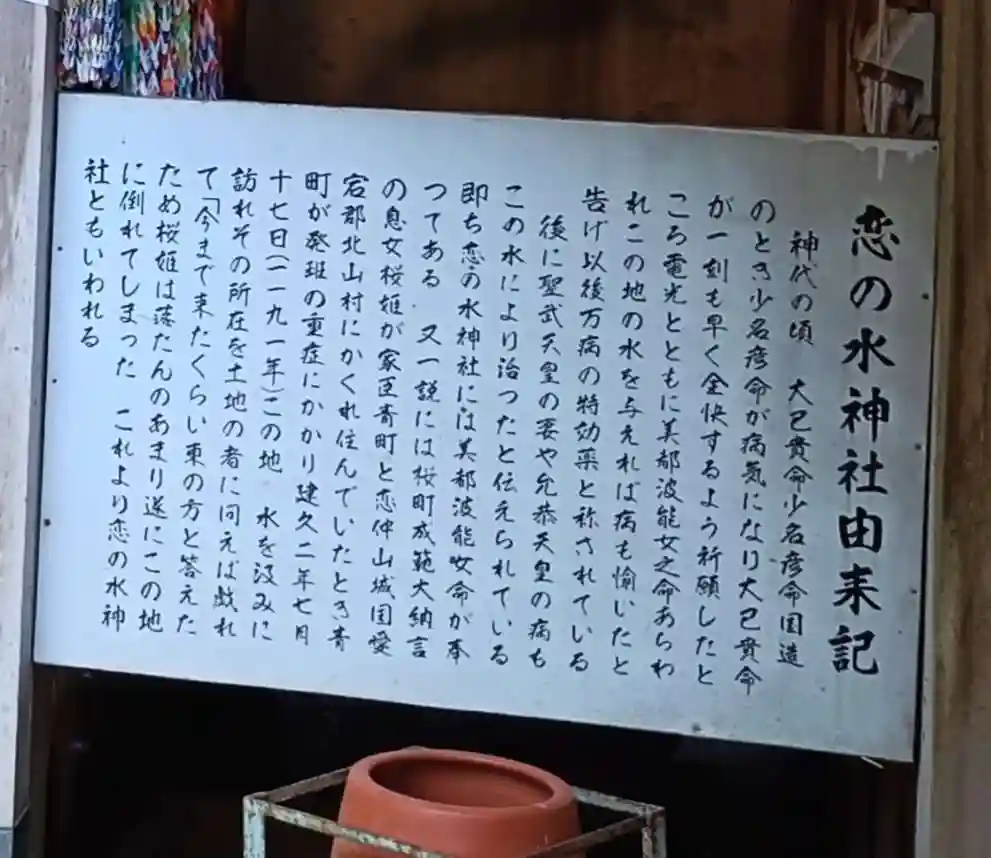 恋の水神社由来記
神代の頃　大己貴命少名彦命国造
のとき少名彦命が病気になり大己貴命
が一刻も早く全快するよう祈願したと
ころ電光とともに美都波能女之命あらわ
れこの地の水を与えれば病も愉いたと
告げ以後万病の特効薬と称されている
後に聖武天皇の妾や允恭天皇の病も
この水により治つたと伝えられている
即ち恋の水神社には美都波能女命が奉
つてある　又一説には桜町成範大納言
の息女桜姫が家臣青町と恋仲山城国愛
宕郡北山村にかくれ住んでいたとき青
町が発班の重症にかかり建久二年七月
十七日(一一九一年)この地　水を汲みに
訪れその所在を土地の者に問えば戯れ
て「今まで来たくらい東の方と答えた
ため桜姫は落たんのあまり遂にこの地
に倒れてしまった　これより恋の水神
社ともいわれる